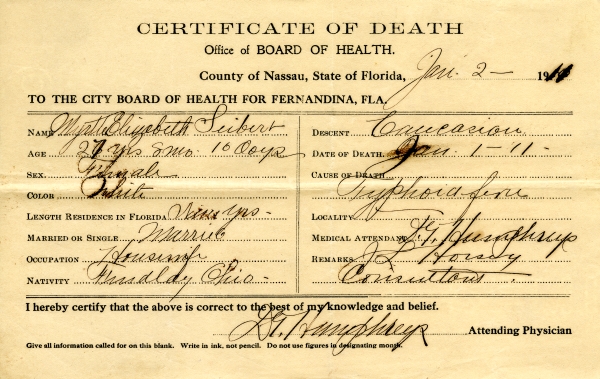 CERTIFICATE OF DEATH
Office of BOARD OF HEALTH.
County of Nassau, State of Florida, Jan. 2 - 1911
TO THE CITY BOARD OF HEALTH FOR FERNANDINA, FLA.
NAME Myrtle Elizabeth Seibert
AGE 27 yrs 8 mo. 10 Days
SEX. Female
COLOR White
LENGTH RESIDENCE IN FLORIDA yrs -
MARRIED OR SINGLE Married
OCCUPATION Housewife
NATIVITY Findlay Ohio -
DESCENT Caucasion
DATE OF DEATH Jan. 1 - 11 -
CAUSE OF DEATH
Typhoid fever
LOCALITY
MEDICAL ATTENDANT Humphreys
REMARKS Horsey
Consultant.
I hereby certify that the above is correct to the best of my knowledge and belief.
Humphreys Attending Physician
Give all information called for on this blank. Write in ink, not pencil. Do not use figures in designating month.